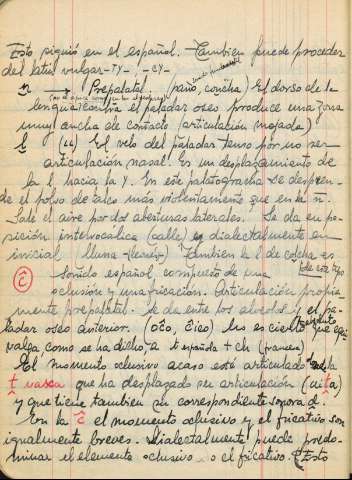 Esto siguió en el español. También puede proceder
del latín vulgar -TY-, -CY-
n → Prepalatal. (paño, concha) El dorso de la
lengua contra el paladar óseo produce una zona
muy ancha de contacto (articulación mojada)
l (ll) El velo del paladar tenso por no ser
articulación nasal. Es un desplazamiento de
la l hacia la y. En este palatograma se despren-
de el polvo de talco más violentamente que en la n.
Sale el aire por dos aberturas laterales. Se da en po-
sición intervocálica (calle) es dialectalmente en
inicial (lluna - ) También la l de colcha es
de este tipo
ĉ Sonido español compuesto de una
oclusión y una fricación. Articulación propia-
mente prepalatal. Se da entre los alveolos y el pa-
ladar óseo anterior. (oĉo, ĉico) No es cierto que equi-
valga como se ha dicho, a t española + ch (francesa)
El momento oclusivo acaso esté articulado la
t vasca que ha desplazado su articulación (aita)
y que tiene también su correspondiente sonora d.
En la ĉ el momento oclusivo y el fricativo son
igualmente breves. Dialectalmente puede predo-
minar el elemento oclusivo o el fricativo. Esto